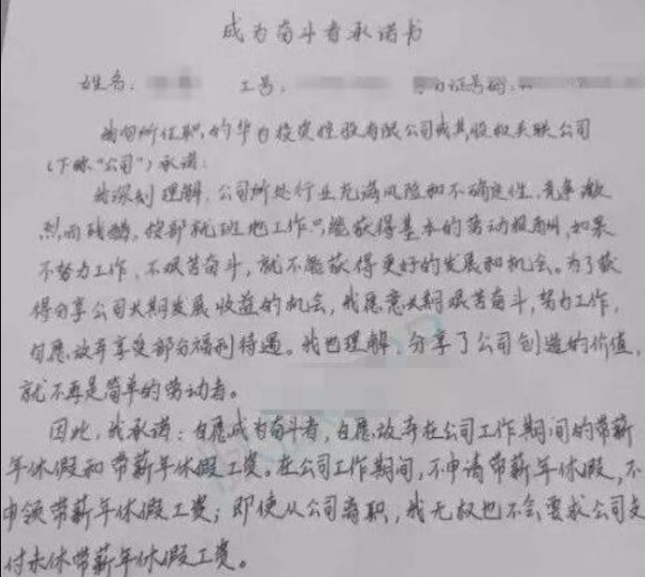 成为奋斗者承诺书
姓名: 工号: 身份证号码:
我向所任职的华为投资控股有限公司或其股权关联公司
(下称“公司”)承诺:
我深刻理解,公司所处行业充满风险和不确定性,竞争激
烈而残酷,按部就班地工作只能获得基本的劳动报酬,如果
不努力工作,不艰苦奋斗,就不能获得更好的发展和机会。为了获
得分享公司长期发展收益的机会,我愿意长期艰苦奋斗,努力工作,
自愿放弃享受部分福利待遇。我也理解,分享了公司创造的价值,
就不再是简单的劳动者。
因此,我承诺:自愿成为奋斗者,自愿放弃在公司工作期间的带薪
年休假和带薪年休假工资。在公司工作期间,不申请带薪年休假,不
申领带薪年休假工资;即使从公司离职,我无权也不会要求公司支
付未休带薪年休假工资。